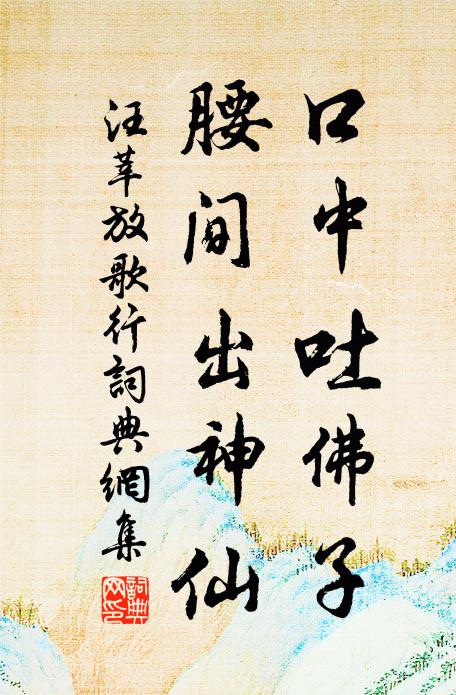 口中吐佛子
腰間出神仙
汪莘放歌行詞典網集
詞典網印